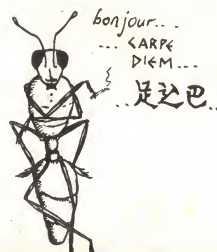 bonjour...
... CARPE
DIEM...